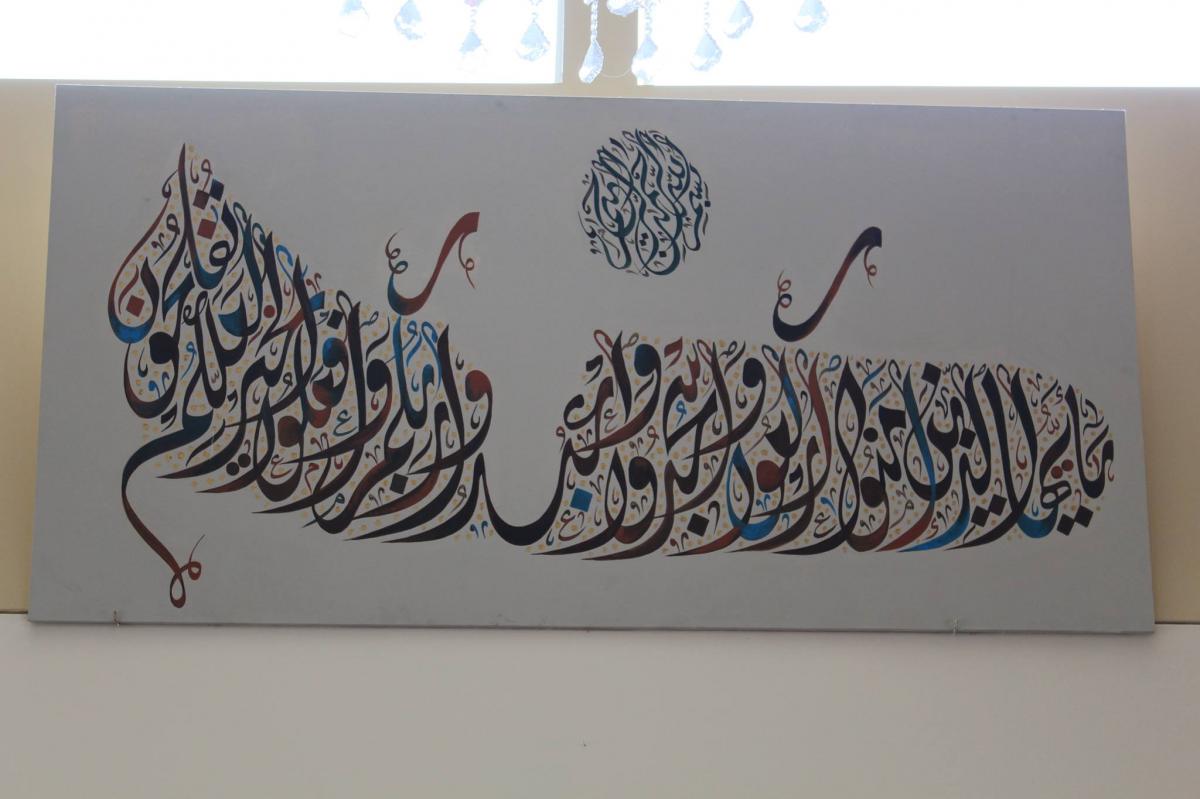 بسم الله الرحمن الرحيم
يا أيها الذين آمنوا اركعوا واسجدوا واعبدوا ربكم وافعلوا الخير لعلكم تفلحون